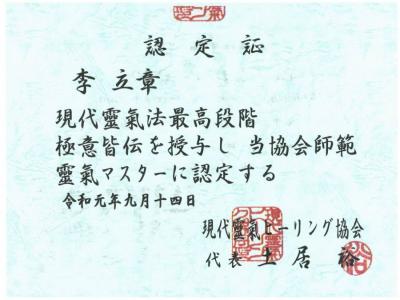 認定証
李立章
現代靈氣法最高段階
極意皆伝を授与し 当協会師範
靈氣マスターに認定する
令和元年九月十四日
現代靈氣ヒーリング協会
代表 土居 裕